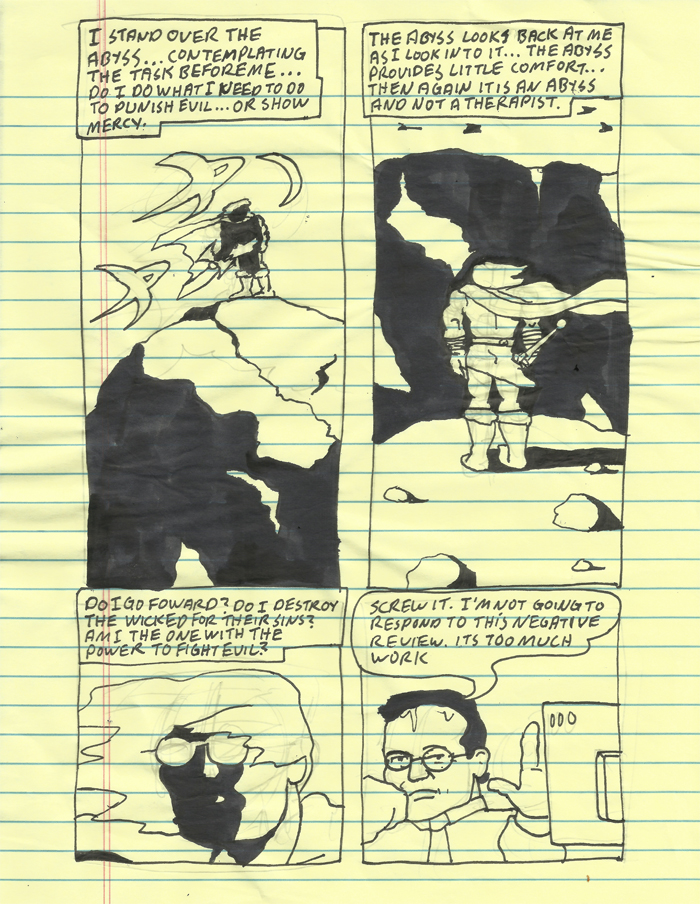 I STAND OVER THE
ABYSS... CONTEMPLATING
THE TASK BEFORE ME...
DO I DO WHAT I NEED TO DO
TO PUNISH EVIL... OR SHOW
MERCY.
THE ABYSS LOOKS BACK AT ME
AS I LOOK INTO IT... THE ABYSS
PROVIDES LITTLE COMFORT...
THEN AGAIN IT IS AN ABYSS
AND NOT A THERAPIST.
DO I GO FOWARD? DO I DESTROY
THE WICKED FOR THEIR SINS?
AM I THE ONE WITH THE
POWER TO FIGHT EVIL?
SCREW IT. I'M NOT GOING TO
RESPOND TO THIS NEGATIVE
REVIEW. ITS TOO MUCH
WORK